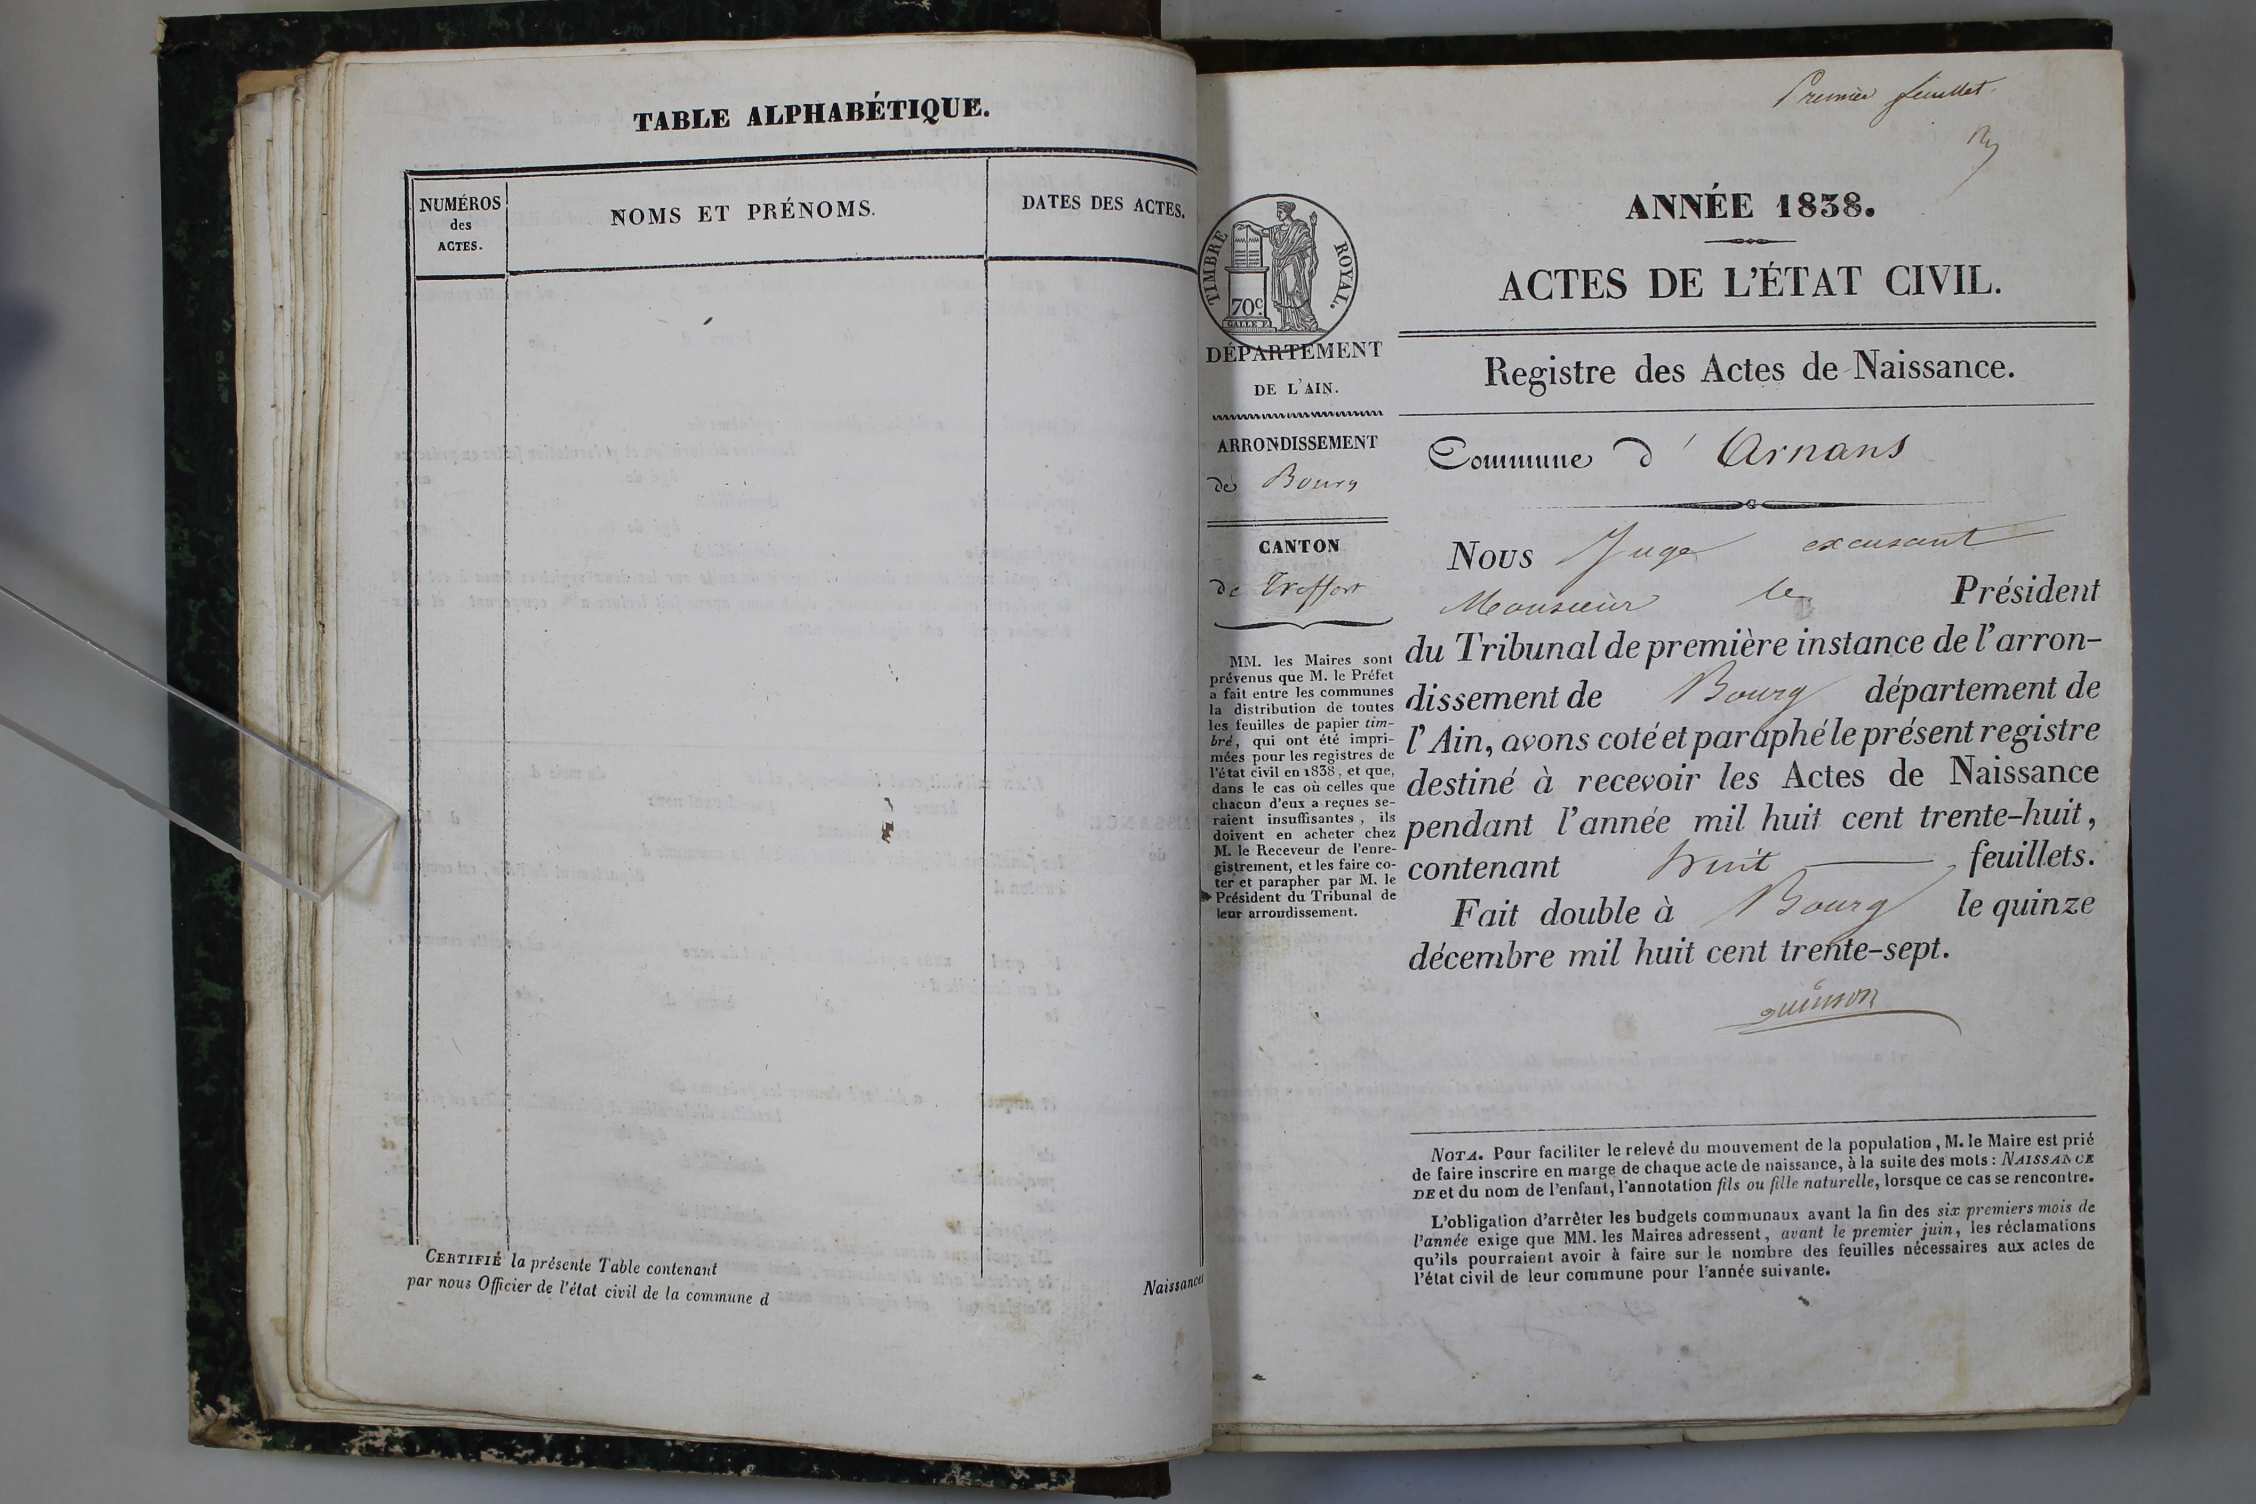 TABLE ALPHABÉTIQUE.
NUMÉROS
des
ACTES.
NOMS ET PRÉNOMS.
DATES DES ACTES.
CERTIFIÉ la présente Table contenant
Naissances
par nous Officier de l'état civil de la commune d
Premier feuillet.
ANNÉE 1838.
ACTES DE L'ÉTAT CIVIL.
TIMBRE ROYAL.
70c.
GALLE F.
DÉPARTEMENT
DE L'AIN.
ARRONDISSEMENT
de Bourg
CANTON
de Treffort
MM. les Maires sont
prévenus que M. le Préfet
a fait entre les communes
la distribution de toutes
les feuilles de papier tim-
bré, qui ont été impri-
mées pour les registres de
l'état civil en 1838, et que,
dans le cas où celles que
chacun d'eux a reçues se-
raient insuffisantes, ils
doivent en acheter chez
M. le Receveur de l'enre-
gistrement, et les faire co-
ter et parapher par M. le
Président du Tribunal de
leur arrondissement.
Registre des Actes de Naissance.
Commune d'Arnans
Nous Juge excusant
Monsieur le Président
du Tribunal de première instance de l'arron-
dissement de Bourg département de
l'Ain, avons coté et paraphé le présent registre
destiné à recevoir les Actes de Naissance
pendant l'année mil huit cent trente-huit,
contenant huit feuillets.
Fait double à Bourg le quinze
décembre mil huit cent trente-sept.
NOTA. Pour faciliter le relevé du mouvement de la population, M. le Maire est prié
de faire inscrire en marge de chaque acte de naissance, à la suite des mots: NAISSANCE
DE et du nom de l'enfant, l'annotation fils ou fille naturelle, lorsque ce cas se rencontre.
L'obligation d'arrêter les budgets communaux avant la fin des six premiers mois de
l'année exige que MM. les Maires adressent, avant le premier juin, les réclamations
qu'ils pourraient avoir à faire sur le nombre des feuilles nécessaires aux actes de
l'état civil de leur commune pour l'année suivante.